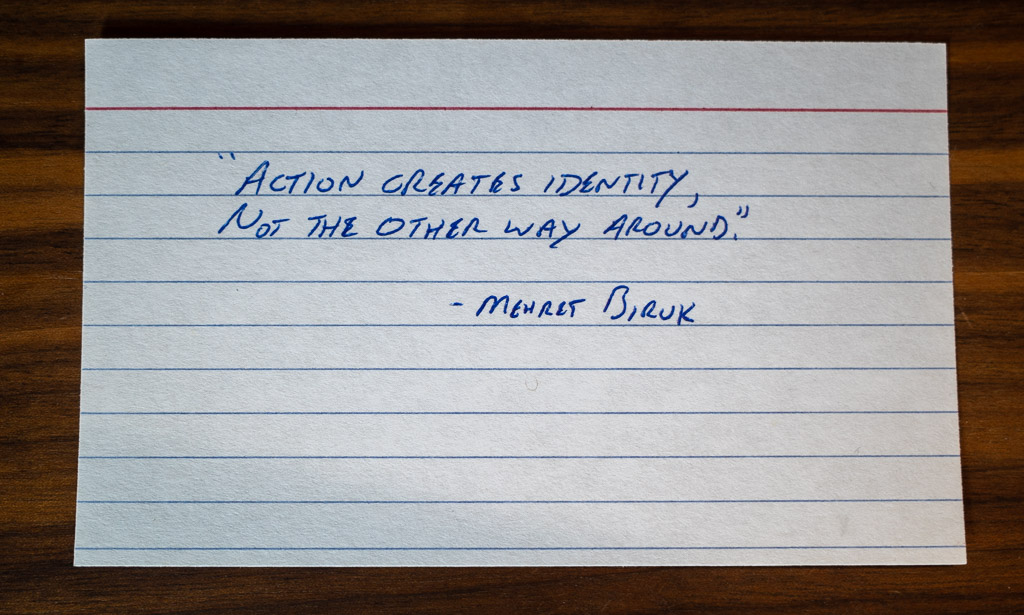 "ACTION CREATES IDENTITY,
NOT THE OTHER WAY AROUND."
- MEHRET BIRUK